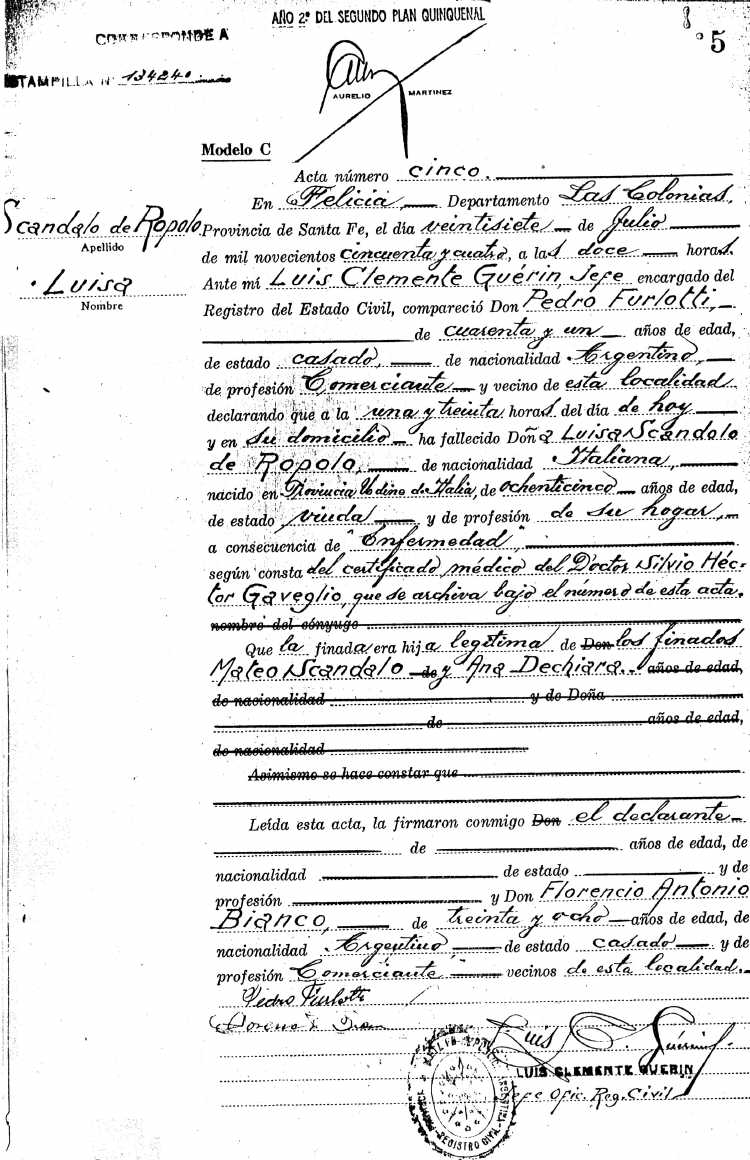 AÑO 2º DEL SEGUNDO PLAN QUINQUENAL
8
CORRESPONDE A
5
ESTAMPILLA Nº 134240
AURELIO MARTINEZ
Modelo C
Acta número cinco.
En Felicia, Departamento Las Colonias,
Scandalo de Ropolo
Apellido
Provincia de Santa Fe, el día veintisiete de Julio
de mil novecientos cincuenta y cuatro, a las doce horas.
Luisa
Nombre
Ante mí Luis Clemente Guérin, Jefe encargado del
Registro del Estado Civil, compareció Don Pedro Furlotti,
de cuarenta y un años de edad,
de estado casado, de nacionalidad Argentino,
de profesión Comerciante y vecino de esta localidad
declarando que a la una y treinta horas del día de hoy
y en su domicilio ha fallecido Doña Luisa Scandolo
de Ropolo, de nacionalidad Italiana,
nacido en Provincia Udine de Italia, de ochenticinco años de edad,
de estado viuda y de profesión de su hogar,
a consecuencia de "Enfermedad",
según consta del certificado médico del Doctor Silvio Héc-
tor Gaveglio, que se archiva bajo el número de esta acta.
nombre del cónyuge
Que la finada era hija legítima de Don los finados
Mateo Scandalo de y Ana Dechiara. años de edad,
de nacionalidad y de Doña
de años de edad,
de nacionalidad
Asimismo se hace constar que
Leída esta acta, la firmaron conmigo Don el declarante
de años de edad, de
nacionalidad de estado y de
profesión y Don Florencio Antonio
Bianco, de treinta y ocho años de edad, de
nacionalidad Argentino, de estado casado y de
profesión Comerciante vecinos de esta localidad.
Pedro Furlotti
Luis C. Guérin
LUIS CLEMENTE GUERIN
Jefe Ofic. Reg. Civil
REGISTRO CIVIL